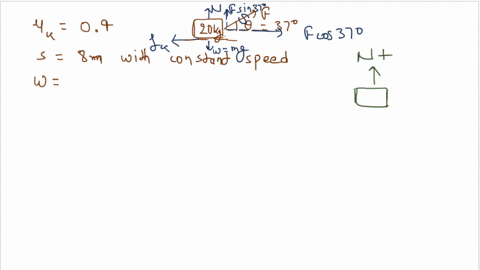 μk = 0.4
N F sin37° F
20kg θ = 37° F cos37°
fk
w=mg
s = 8m with constant speed
N +
w =